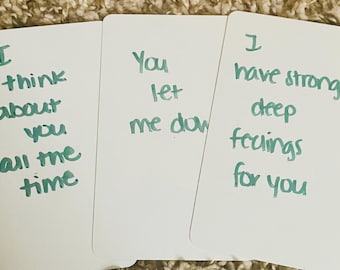 I
think
about
you
all the
time
You
let
me dow
I
have strong
deep
feelings
for you